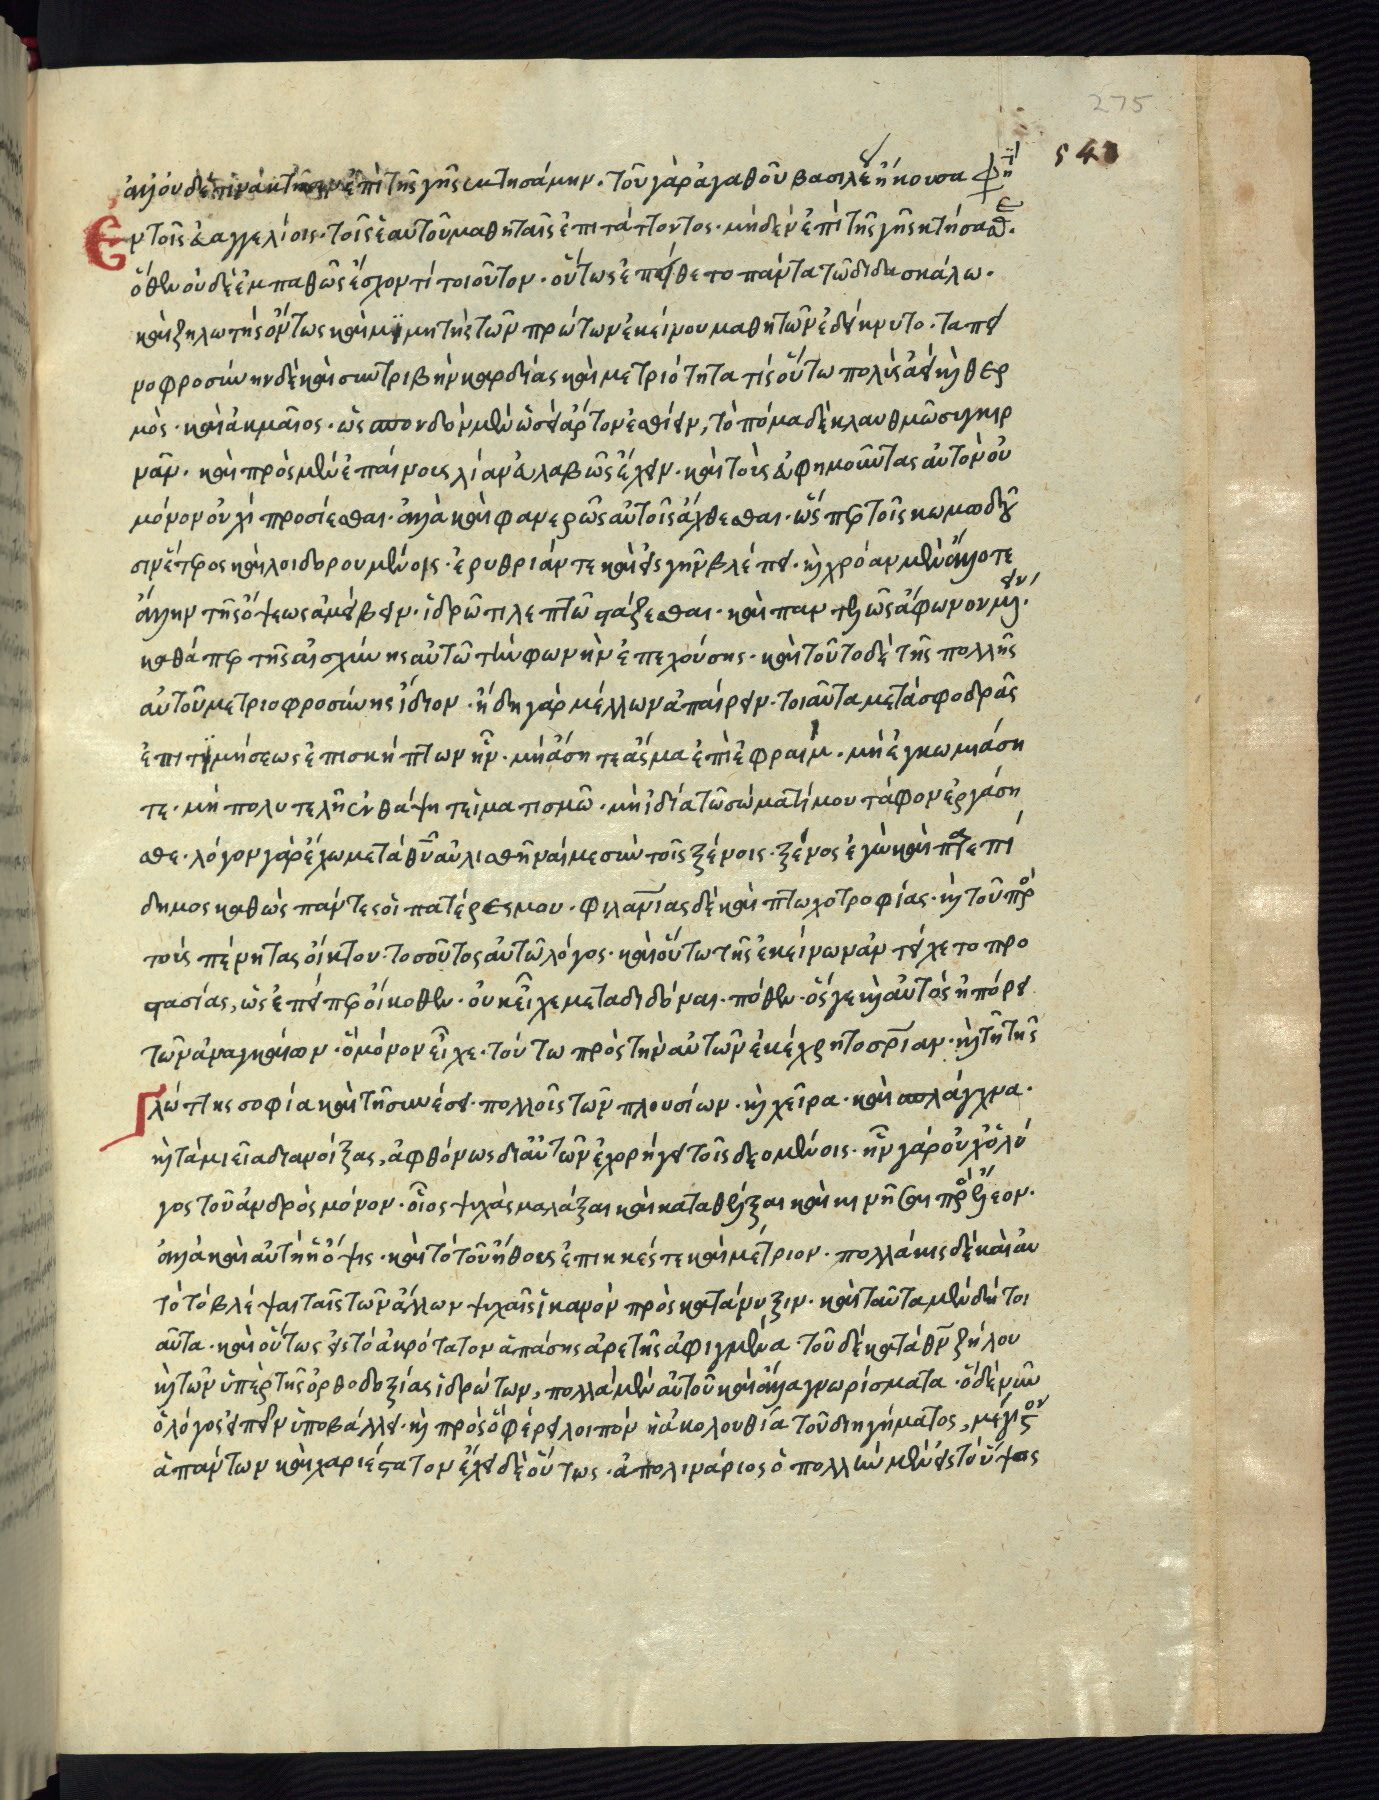 275
543
ἀλλ' οὐδέ τινα κτῆσιν ἐπὶ τῆς γῆς ἐκτησάμην. τοῦ γὰρ ἀγαθοῦ βασιλέως ἤκουσα φησὶ
ἐν τοῖς εὐαγγελίοις. τοῖς ἑαυτοῦ μαθηταῖς ἐπιτάττοντος. μηδὲν ἐπὶ τῆς γῆς κτήσασθε.
ὅθεν οὐδὲ ἐμπαθῶς ἔσχον τί τοιοῦτον. οὕτως ἐπείθετο πάντα τῷ διδασκάλῳ.
καὶ ζηλωτὴς ὄντως καὶ μϊμητὴς τῶν πρώτων ἐκείνου μαθητῶν ἐδείκνυτο. ταπει
νοφροσύνην δὲ καὶ συντριβὴν καρδίας καὶ μετριότητα τίς οὕτω πολὺς ἀεὶ καὶ θερ
μὸς. καὶ ἀκμαῖος. ὡς σποδὸν μὲν ὡσεὶ ἄρτον ἐσθίειν, τὸ πόμα δὲ κλαυθμῶ συγκιρ
νᾶν. καὶ πρὸς μὲν ἐπαίνους λίαν εὐλαβῶς ἔχειν. καὶ τοὺς εὐφημοῦντας αὐτὸν οὐ
μόνον οὐχὶ προσίεσθαι. ἀλλὰ καὶ φανερῶς αὐτοῖς ἄχθεσθαι. ὥσπερ τοῖς κωμωδοῦ
σιν ἕτερος καὶ λοιδορουμένοις. ἐρυθριᾶν τε καὶ εἰς γῆν βλέπει. καὶ χρόαν μὲν ἄλλοτε
ἄλλην τῆς ὄψεως ἀμείβειν. ἱδρῶτι λεπτῶ στάζεσθαι. καὶ παντελῶς ἄφωνον μένειν.
καθάπερ τῆς αἰσχύνης αὐτῶ τὴν φωνὴν ἐπεχούσης. καὶ τοῦτο δὲ τῆς πολλῆς
αὐτοῦ μετριοφροσύνης ἴδιον. ἤδη γὰρ μέλλων ἀπαίρειν. τοιαῦτα μετὰ σφοδρᾶς
ἐπιτϊμήσεως ἐπισκήπτων ἦν. μὴ ἄσητε ἆσμα ἐπὶ ἐφραίμ. μὴ ἐγκωμιάση
τε. μὴ πολυτελῆ ἐνθάψητε ἱματισμῶ. μὴ ἰδία τῶ σώματί μου τάφον ἐργάση
σθε. λόγον γὰρ ἔχω μετὰ θεοῦ αὐλισθῆναί με σὺν τοῖς ξένοις. ξένος ἐγὼ καὶ παρεπί
δημος καθὼς πάντες οἱ πατέρες μου. φιλανθρωπίας δὲ καὶ πτωχοτροφίας. καὶ τοῦ πρὸς
τοὺς πένητας οἴκτου. τοσοῦτος αὐτῶ λόγος. καὶ οὕτω τῆς ἐκείνων ἀντείχετο προ
στασίας, ὡς ἐπείπερ οἴκοθεν. οὐκ εἶχε μεταδιδόναι. πόθεν. ὅς γε καὶ αὐτὸς ἠπόρει
τῶν ἀναγκαίων. ὃ μόνον εἶχε. τούτω πρὸς τὴν αὐτῶν ἐκέχρητο σωτηρίαν. καὶ τῆ τῆς
γλώττης σοφία καὶ τῆ συνέσει. πολλοῖς τῶν πλουσίων. καὶ χεῖρα. καὶ σπλάγχνα.
καὶ ταμιεῖα διανοίξας, ἀφθόνως δι' αὐτῶν ἐχορήγει τοῖς δεομένοις. ἦν γὰρ οὐχ ὁ λό
γος τοῦ ἀνδρὸς μόνον. οἷος ψυχὰς μαλάξαι καὶ καταθέλξαι καὶ κινῆσαι πρὸς ἔλεον.
ἀλλὰ καὶ αὐτὴ ἡ ὄψις. καὶ τὸ τοῦ ἤθους ἐπιεικές τε καὶ μέτριον. πολλάκις δὲ καὶ αὐ
τὸ τὸ βλέψαι ταῖς τῶν ἄλλων ψυχαῖς ἱκανὸν πρὸς κατάνυξιν. καὶ ταῦτα μὲν δὴ τοι
αῦτα. καὶ οὕτως εἰς τὸ ἀκρότατον ἁπάσης ἀρετῆς ἀφιγμένα. τοῦ δὲ κατὰ θεὸν ζήλου
καὶ τῶν ὑπὲρ τῆς ὀρθοδοξίας ἱδρώτων, πολλὰ μὲν αὐτοῦ καὶ ἄλλα γνωρίσματα. ὃ δὲ νῦν
ὁ λόγος εἰπεῖν ὑποβάλλει. καὶ πρὸς ὃ φέρει λοιπὸν ἡ ἀκολουθία τοῦ διηγήματος, μέγιστον
ἁπάντων καὶ χαριέστατον ἔχει δὲ οὕτως. ἀπολινάριος ὁ πολλὴν μὲν εἰς τὸ ὕψος